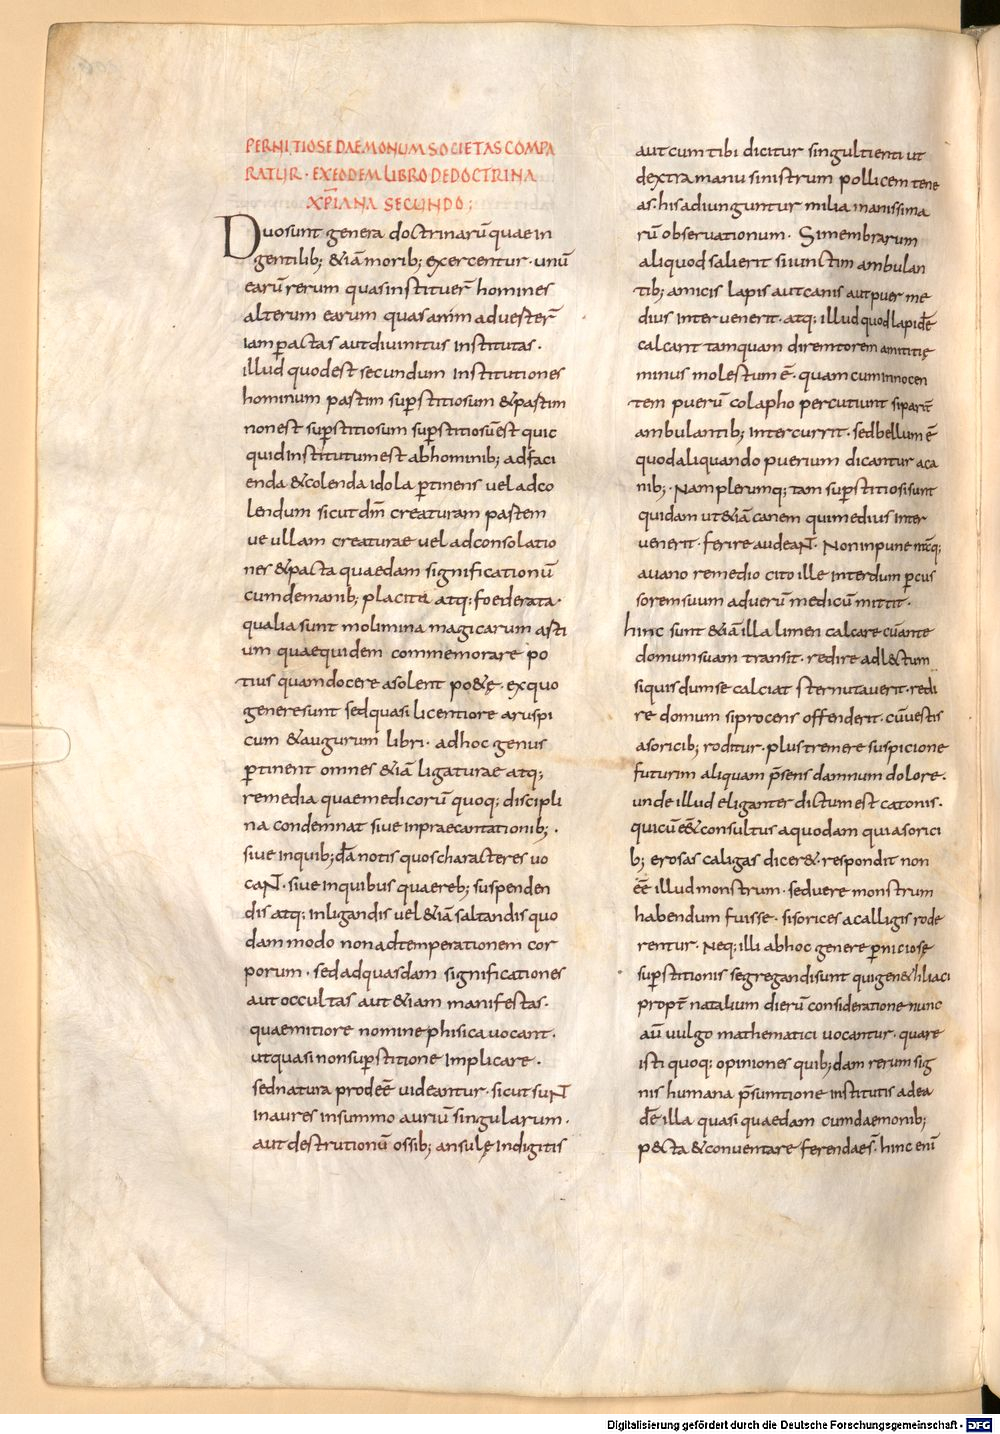 PERNITIOSE DAEMONUM SOCIETAS COMPA
RATUR · EX EODEM LIBRO DE DOCTRINA
XP̅IANA SECUNDO;
Duo sunt genera doctrinarū quae in
gentilib; &iā morib; exercentur · unū
earū rerum quas instituer̄ homines
alterum earum quas anim aduester̄
iam ꝑactas aut diuinitus institutas ·
illud quod est secundum institutiones
hominum pastim suꝑstitiosum & pastim
non est suꝑstitiosum suꝑstitiosū est quic
quid institutum est abhominib; ad faci
enda & colenda idola ꝑtinens uel ad co
lendum sicut dm̄ creaturam pastem
ue ullam creaturae uel ad consolatio
nes & pacta quaedam significationū
cum demanib; placita atq; foederata ·
qualia sunt molimina magicarum asti
um quae quidem commemorare po
tius quam docere asolent po&ę · ex quo
genere sunt sed quasi licentiore aruspi
cum & augurum libri · ad hoc genus
ꝑtinent omnes &iā ligaturae atq;
remedia quae medicorū quoq; discipli
na condemnat siue in praecantationib; ·
siue in quib; dā notis quos characteres uo
caNT · siue in quibus quaereb; suspenden
dis atq; inligandis uel &iā saltandis quo
dam modo non ad temperationem cor
porum · sed ad quasdam significationes
aut occultas aut &iam manifestas ·
quae mitiore nomine phisica uocant ·
ut quasi non suꝑstitione implicare ·
sed natura prodeē videantur · sicut suNT
in aures in summo auriū singularum ·
aut de strutionū ossib; ansulę in digitis
aut cum tibi dicitur singultienti ut
dextra manu sinistrum pollicem tene
as · his adiunguntur milia inanissima
rū obseruationum · Si membrarum
aliquod salierit si iunctim ambulan
tib; amicis lapis aut canis aut puer me
dius interuenerit · atq; illud quod lapidē
calcant tamquam diremtorem amititię
minus molestum ē · quam cum innocen
tem puerū colapho percutiunt si parit̄
ambulantib; intercurrit · sed bellum ē
quod aliquando puerium dicantur aca
nib; · Nam plerumq; tam suꝑstitiosi sunt
quidam ut &iā canem qui medius inter
uenerit · ferire audeaNT · Non inpune
auano remedio cito ille interdum ꝑcus
sorem suum ad uerū medicū mittit ·
hinc sunt &iā illa limen calcare cū ante
domum suam transit · redire ad lectum
si quis dum se calciat sternutauerit · redi
re domum si procens offenderit · cū uestis
a soricib; roditur · plus tremere suspicione
futurim aliquam p̄sens damnum dolore ·
unde illud eliganter dictum est catonis ·
qui cū e&& consultus a quodam qui a sorici
b; erosas caligas dicer& · respondit non
eē illud monstrum · sed uere monstrum
habendum fuisse · si sorices a calligis rode
rentur · Neq; illi ab hoc genere ꝑniciosę
suꝑstitionis segregandi sunt qui gen&hliaci
propt̄ natalium dierū consideratione nunc
aū uulgo mathematici uocantur · quare
isti quoq; opiniones quib; dam rerum sig
nis humana p̄sumtione institutis ad ea
dē illa quasi quaedam cum daemonib;
p&cta & conuentare ferenda es̄ · hinc enī
Digitalisierung gefördert durch die Deutsche Forschungsgemeinschaft - DFG